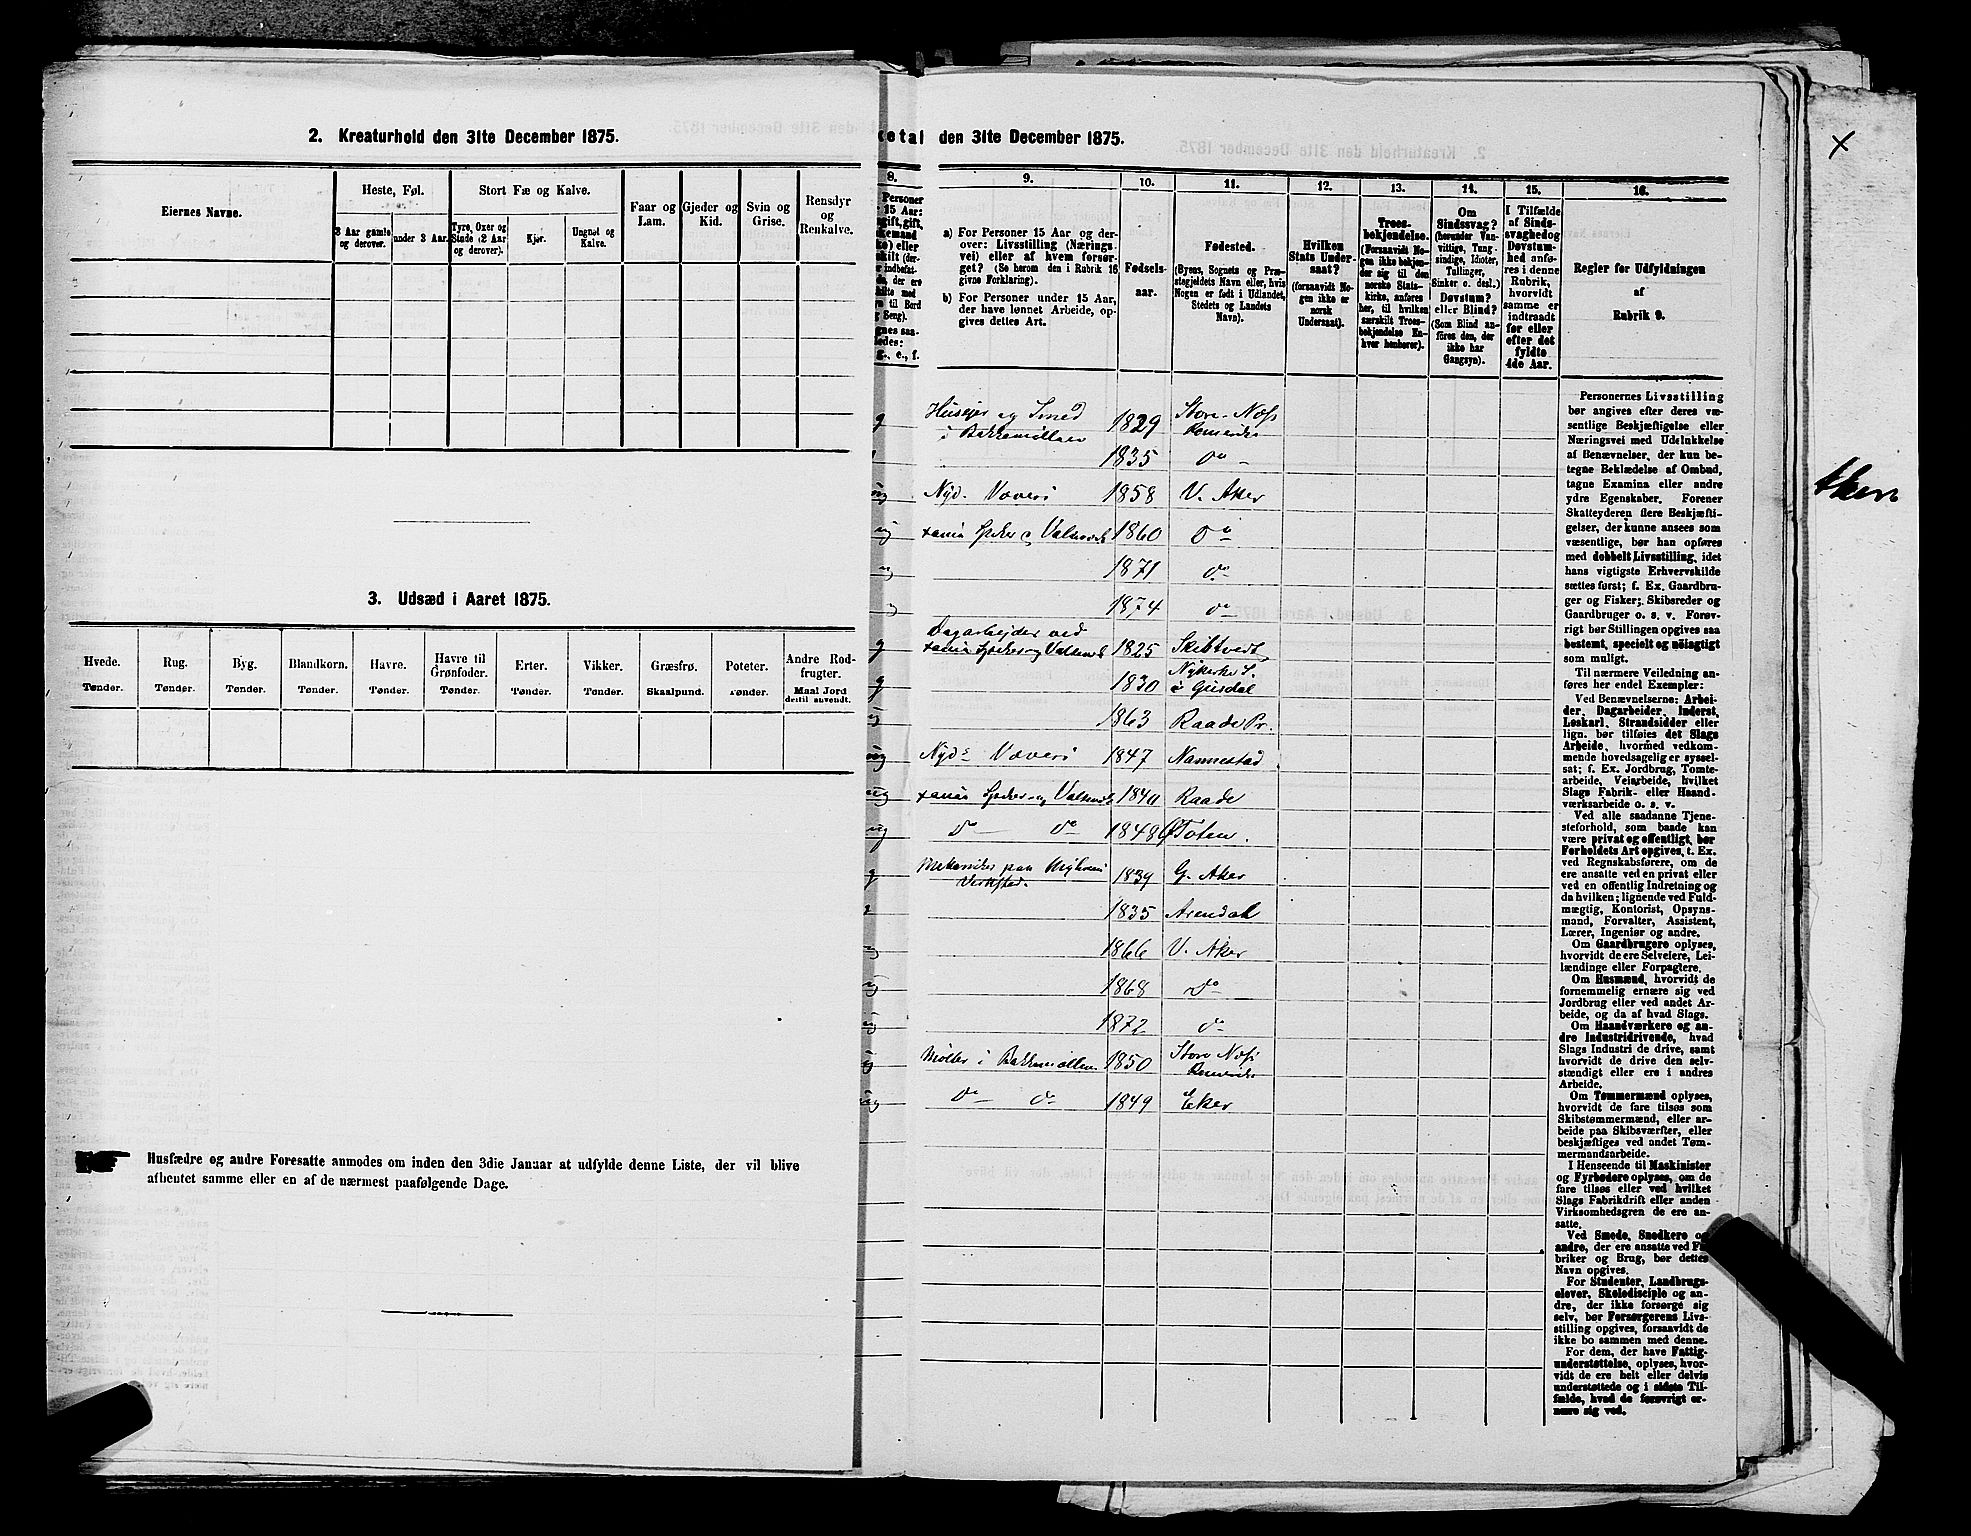 2. Kreaturhold den 31te December 1875.
Eiernes Navne.
Heste, Føl.
Stort Fæ og Kalve.
Faar og Lam.
Gjeder og Kid.
Svin og Grise.
Rensdyr og Renkalve.
3 Aar gamle og derover.
under 3 Aar.
Tyre, Oxer og Stude (2 Aar og derover).
Kjør.
Ungnøt og Kalve.
3. Udsæd i Aaret 1875.
Hvede. Rug. Byg. Blandkorn. Havre. Havre til Grønfoder. Erter. Vikker. Græsfrø. Poteter. Andre Rodfrugter.
Tønder. Tønder. Tønder. Tønder. Tønder. Tønder. Tønder. Tønder. Skaalpund. Tønder. Maal Jord dertil anvendt.
Husfædre og andre Foresatte anmodes om inden den 3die Januar at udfylde denne Liste, der vil blive
afhentet samme eller en af de nærmest paafølgende Dage.
etal den 31te December 1875.
8. 9. 10. 11. 12. 13. 14. 15. 16.
Personer
15 Aar:
gift, gift,
a) For Personer 15 Aar og der-
over: Livsstilling (Nærings-
vei) eller af hvem forsør-
get? (Se herom den i Rubrik 16
givne Forklaring).
b) For Personer under 15 Aar,
der have lønnet Arbeide, op-
gives dettes Art.
Fødsels-
aar.
Fødested.
(Byens, Sognets og Præ-
stegjeldets Navn eller, hvis
Nogen er født i Udlandet,
Stedets og Landets
Navn).
Hvilken
Stats Under-
saat?
(forsaavidt No-
gen ikke er
norsk
Undersaat).
Troes-
bekjendelse.
(Forsaavidt No-
gen ikke bekjen-
der sig til den
norske Stats-
kirke, anføres
her, til hvilken
særskilt Troes-
bekjendelse En-
hver henhører).
Om
Sindssvag?
(herunder Van-
vittige, Tung-
sindige, Idioter,
Tullinger,
Sinker o. desl.)
Døvstum?
eller Blind?
(Som Blind an-
føres den, der
ikke har
Gangsyn).
I Tilfælde
af Sinds-
svaghed og
Døvstum-
hed anfø-
res i denne
Rubrik,
hvorvidt
samme er
indtraadt
før eller
efter det
fyldte
4de Aar.
Regler for Udfyldningen
af
Rubrik 9.
Huseier og Smed
i Bakkemøllen 1829 Store-Næss Romerike
1835 do
Nyd. Væveri 1858 V. Aker
Spiker og Valseverk 1860 do
1871 do
1874 do
Dagarbejder ved
Spiker og Valseverk 1825 Skibtvedt
1830
1863 Raade Pr.
Nyds Væveri 1847 Nannestad
Spiker og Valseverk Raade
do do 1848 Ø Toten.
paa
Verksted. 1839 G. Aker
1835 Arendal
1866 V. Aker
1868 do
1872 do
Møller i Bakkemøllen 1850 Store Næss Romerike
do do 1849 Eker
Personernes Livsstilling
bør angives efter deres væ-
sentlige Beskjæftigelse eller
Næringsvei med Udelukkelse
af Benævnelser, der kun be-
tegne Beklædelse af Ombud,
tagne Examina eller andre
ydre Egenskaber. Forener
Skatteyderen flere Beskjæfti-
gelser, der kunne ansees som
væsentlige, bør han opføres
med dobbelt Livsstilling, idet
hans vigtigste Erhvervskilde
sættes først; f. Ex. Gaardbru-
ger og Fisker; Skibsreder og
Gaardbruger o. s. v. Forøv-
rigt bør Stillingen opgives saa
bestemt, specielt og nøiagtigt
som muligt.
Til nærmere Veiledning an-
føres her endel Exempler:
Ved Benævnelserne: Arbei-
der, Dagarbeider, Inderst,
Løskarl, Strandsidder eller
lign. bør tilføies det Slags
Arbeide, hvormed vedkom-
mende hovedsagelig er syssel-
sat; f. Ex. Jordbrug, Tomte-
arbeide, Veiarbeide, hvilket
Slags Fabrik- eller Haand-
værksarbeide o. s. v.
Ved alle saadanne Tjene-
steforhold, som baade kan
være privat og offentligt, bør
Forholdets Art opgives, t. Ex.
ved Regnskabsførere, om de
ere ansatte ved en privat eller
ved en offentlig Indretning og
da hvilken; lignende ved Fuld-
mægtig, Kontorist, Opsyns-
mand, Forvalter, Assistent,
Lærer, Ingeniør og andre.
Om Gaardbrugere oplyses,
hvorvidt de ere Selveiere, Lei-
lændinge eller Forpagtere.
Om Husmænd, hvorvidt de
fornemmelig ernære sig ved
Jordbrug eller ved andet Ar-
beide, og da af hvad Slags.
Om Haandværkere og an-
dre Industridrivende, hvad
Slags Industri de drive, samt
hvorvidt de drive den selv-
stændigt eller ere i andres
Arbeide.
Om Tømmermænd oplyses,
hvorvidt de fare tilsøs som
Skibstømmermænd, eller ar-
beide paa Skibsværfter, eller
beskjæftiges ved andet Tøm-
mermandsarbeide.
I Henseende til Maskinister
og Fyrbødere oplyses, om de
fare tilsøs eller ved hvilket
Slags Fabrikdrift eller anden
Virksomhedsgren de ere an-
satte.
Ved Smede, Snedkere og
andre, der ere ansatte ved Fa-
briker og Brug, bør dettes
Navn opgives.
For Studenter, Landbrugs-
elever, Skoledisciple og an-
dre, der ikke forsørge sig
selv, bør Forsørgerens Livs-
stilling opgives, forsaavidt de
ikke bo sammen med denne.
For dem, der have Fattig-
understøttelse, oplyses, hvor-
vidt de ere helt eller delvis
understøttede og i sidste Til-
fælde, hvad de forøvrigt er-
nære sig ved.